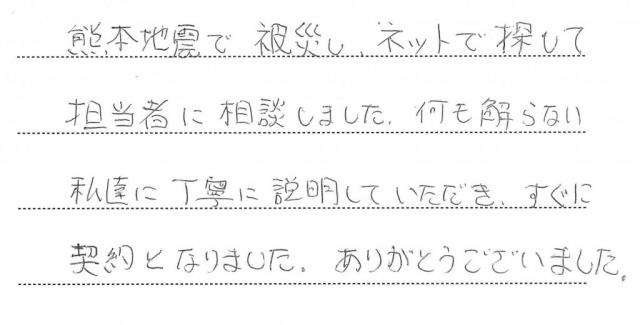 熊本地震で被災し、ネットで探して
担当者に相談しました。何も解らない
私達に丁寧に説明していただき、すぐに
契約となりました。ありがとうございました。